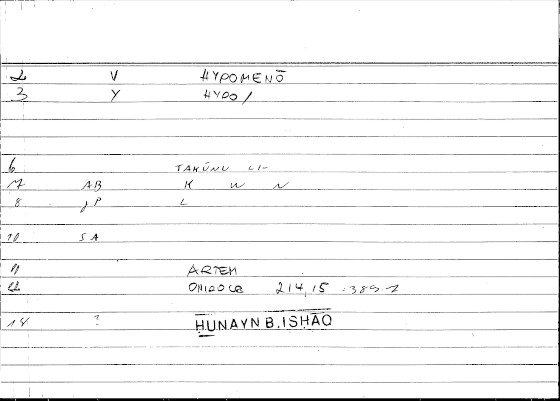 2 V HYPOMENŌ
3 Y HYPO/
6 TAKŪNU LI-
7 AB K W N
8 jP L
10 SA
11 ARTEM
12 ONIROCR 214,15
14 ? HUNAYN B. ISHĀQ